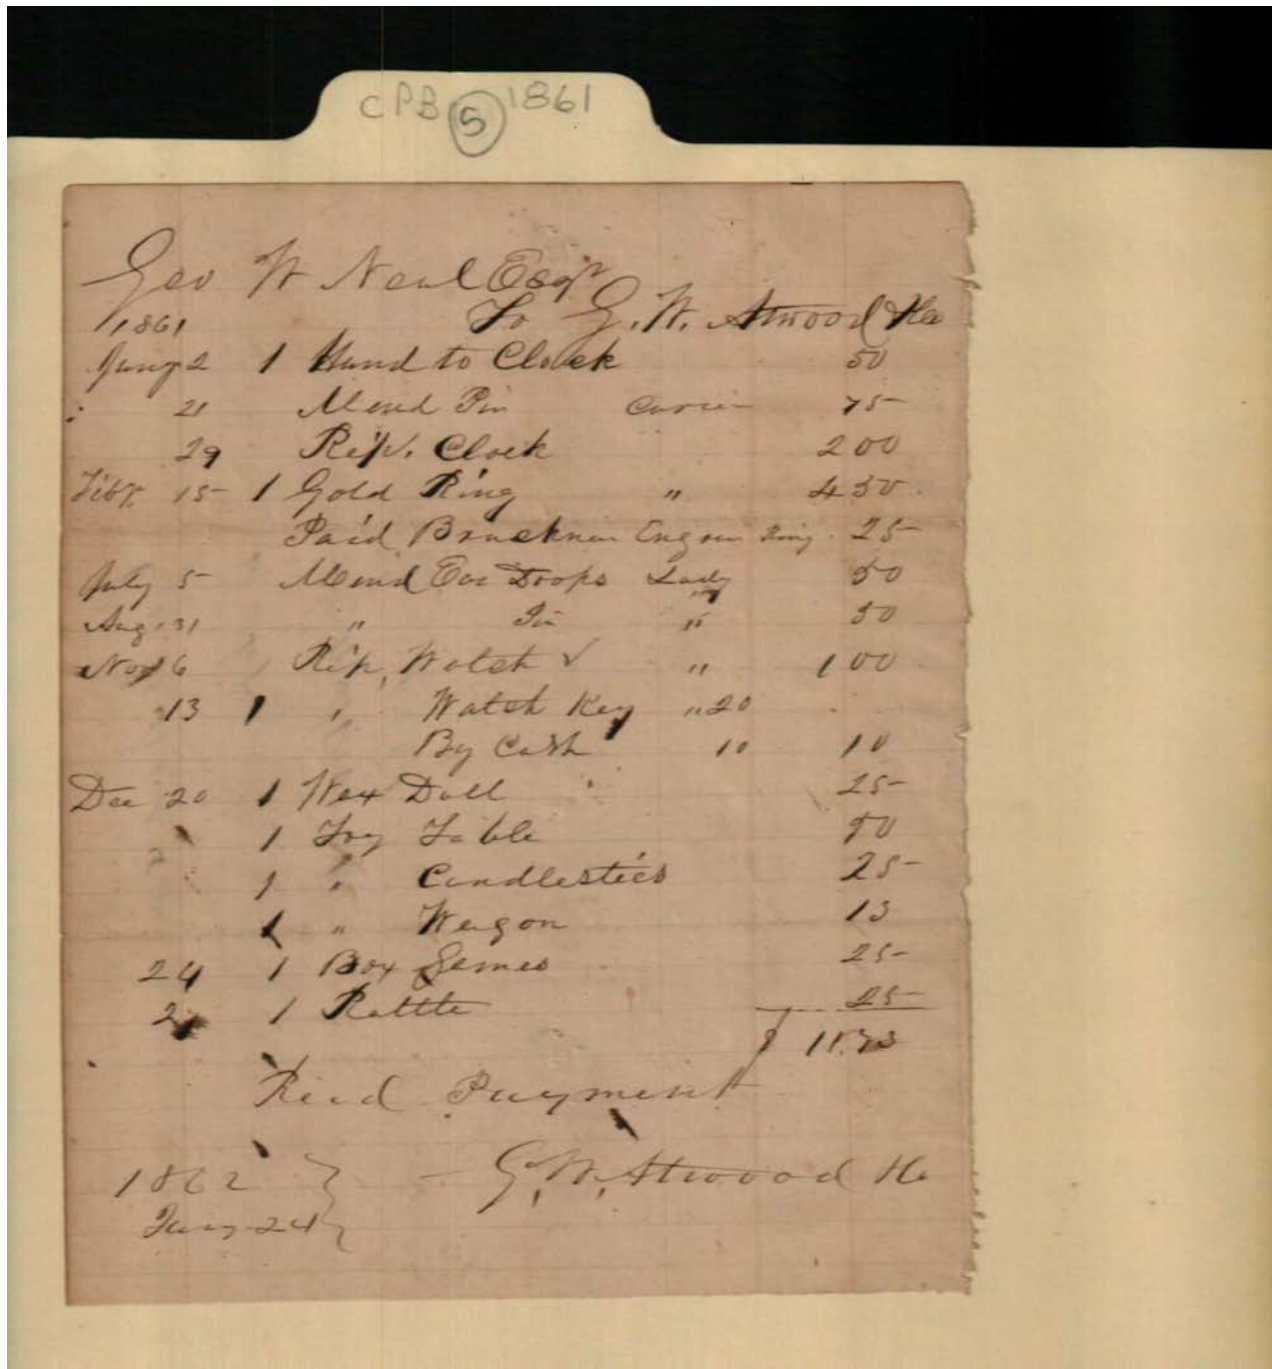 CPB 5 1861
Geo W Neal Esqr
1861 To G. W. Atwood
Jany 2 1 Hand to Clock 50
21 Mend Pin 75
29 Rep. Clock 2 00
Feby. 15 1 Gold Ring " 4 50
Paid Bruckner Engrav Ring. 25
July 5 Mend Ear Drops Lady 50
Aug 31 " Pin " 50
Nov 6 Rep, Watch √ " 1 00
13 1 " Watch Key " 20
By Cash 10 10
Dec 20 1 Wax Doll 25
1 Toy Table 50
1 " Candlesticks 25
1 " Wagon 13
24 1 Box Games 25
1 Rattle 25
$ 11.73
Recd Payment
1862 } - G. W. Atwood
Jany 24